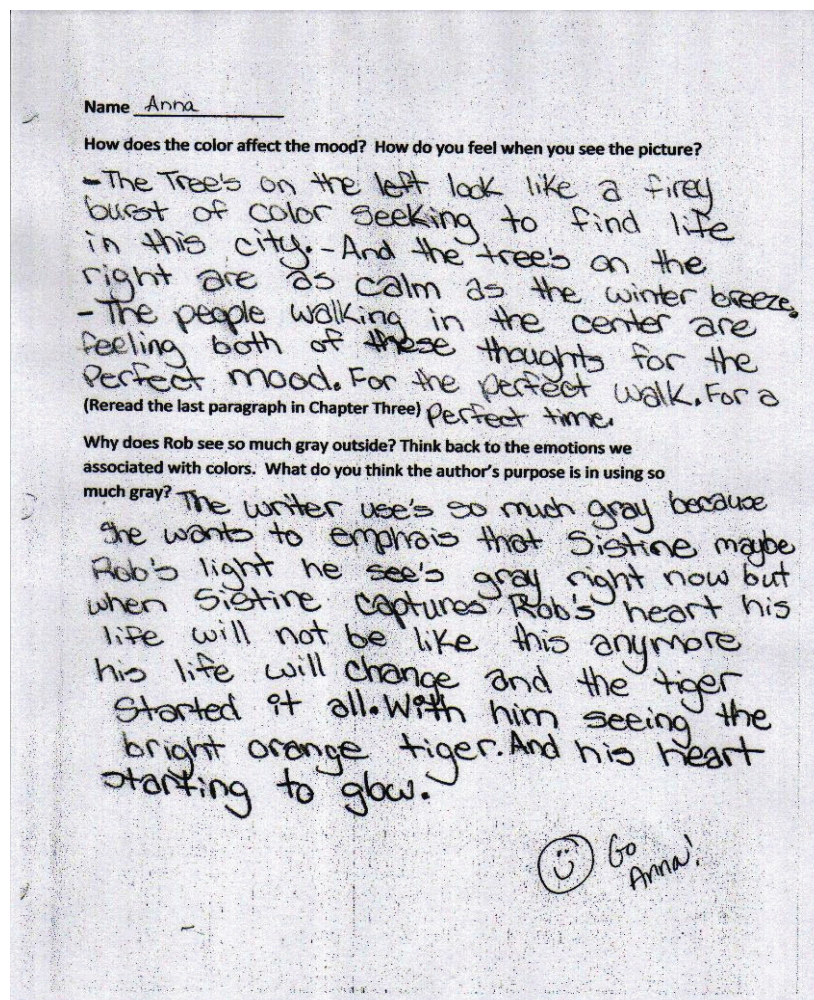 Name Anna
How does the color affect the mood? How do you feel when you see the picture?
- The Tree's on the left look like a firey
burst of color seeking to find life
in this city. - And the tree's on the
right are as calm as the winter breeze.
- The people walking in the center are
feeling both of these thoughts for the
perfect mood. For the perfect walk. For a
(Reread the last paragraph in Chapter Three) perfect time.
Why does Rob see so much gray outside? Think back to the emotions we
associated with colors. What do you think the author's purpose is in using so
much gray? The writer use's so much gray because
she wants to emphais that Sistine maybe
Rob's light he see's gray right now but
when Sistine captures Rob's heart his
life will not be like this anymore
his life will change and the tiger
started it all. With him seeing the
bright orange tiger. And his heart
starting to glow.
Go
Anna!